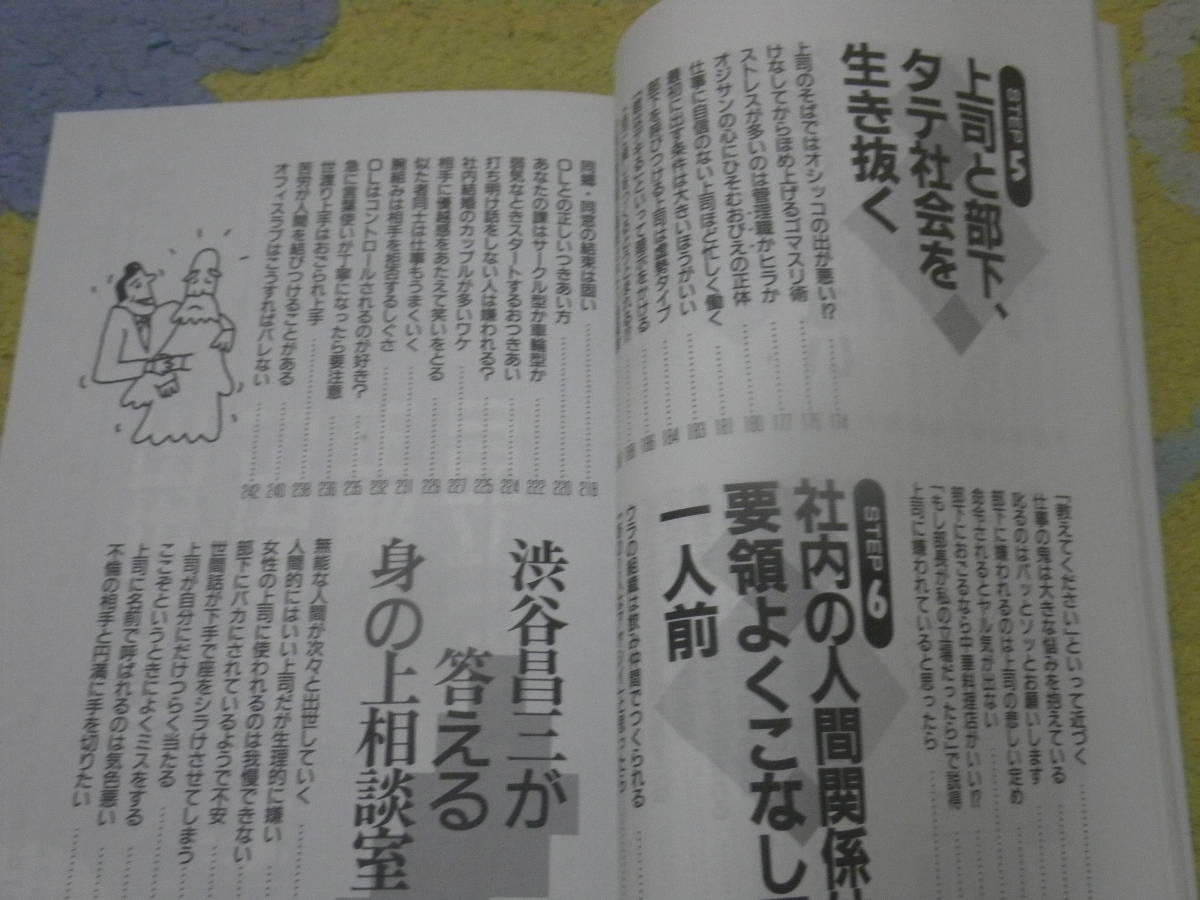 STEP5
上司と部下、
タテ社会を
生き抜く
上司のそばではオシッコの出が悪い!? 174
けなしてからほめ上げるゴマスリ術 175
ストレスが多いのは管理職かヒラか 177
オジサンの心にひそむおびえの正体 180
仕事に自信のない上司ほど忙しく働く 181
最初に出す条件は大きいほうがいい 183
部下を呼びつける上司は虚勢タイプ 184
186
「教えてください」といって近づく
仕事の鬼は大きな悩みを抱えている
叱るのはパッとソッとお願いします
部下に嫌われるのは上司の悲しい定め
命令されるとヤル気が出ない
部下におごるなら中華料理店がいい!?
「もし部長が私の立場だったら」で説得
上司に嫌われていると思ったら
STEP6
社内の人間関係
要領よくこなして
一人前
ウラの組織は飲み仲間でつくられる
同郷・同窓の結束は固い 218
OLとの正しいつきあい方 220
あなたの課はサークル型か車輪型か 222
弱気なときスタートするおつきあい 224
打ち明け話をしない人は嫌われる? 225
社内結婚のカップルが多いワケ 227
相手に優越感をあたえて笑いをとる 229
似た者同士は仕事もうまくいく 231
腕組みは相手を拒否するしぐさ 232
OLはコントロールされるのが好き? 235
急に言葉使いが丁寧になったら要注意 236
世渡り上手はおごられ上手 238
苦労が人間を結びつけることがある 240
オフィスラブはこうすればバレない 242
渋谷昌三が
答える
身の上相談室
無能な人間が次々と出世していく
人間的にはいい上司だが生理的に嫌い
女性の上司に使われるのは我慢できない
部下にバカにされているようで不安
世間話が下手で座をシラけさせてしまう
上司が自分にだけつらく当たる
ここぞというときによくミスをする
上司に名前で呼ばれるのは気色悪い
不倫の相手と円満に手を切りたい